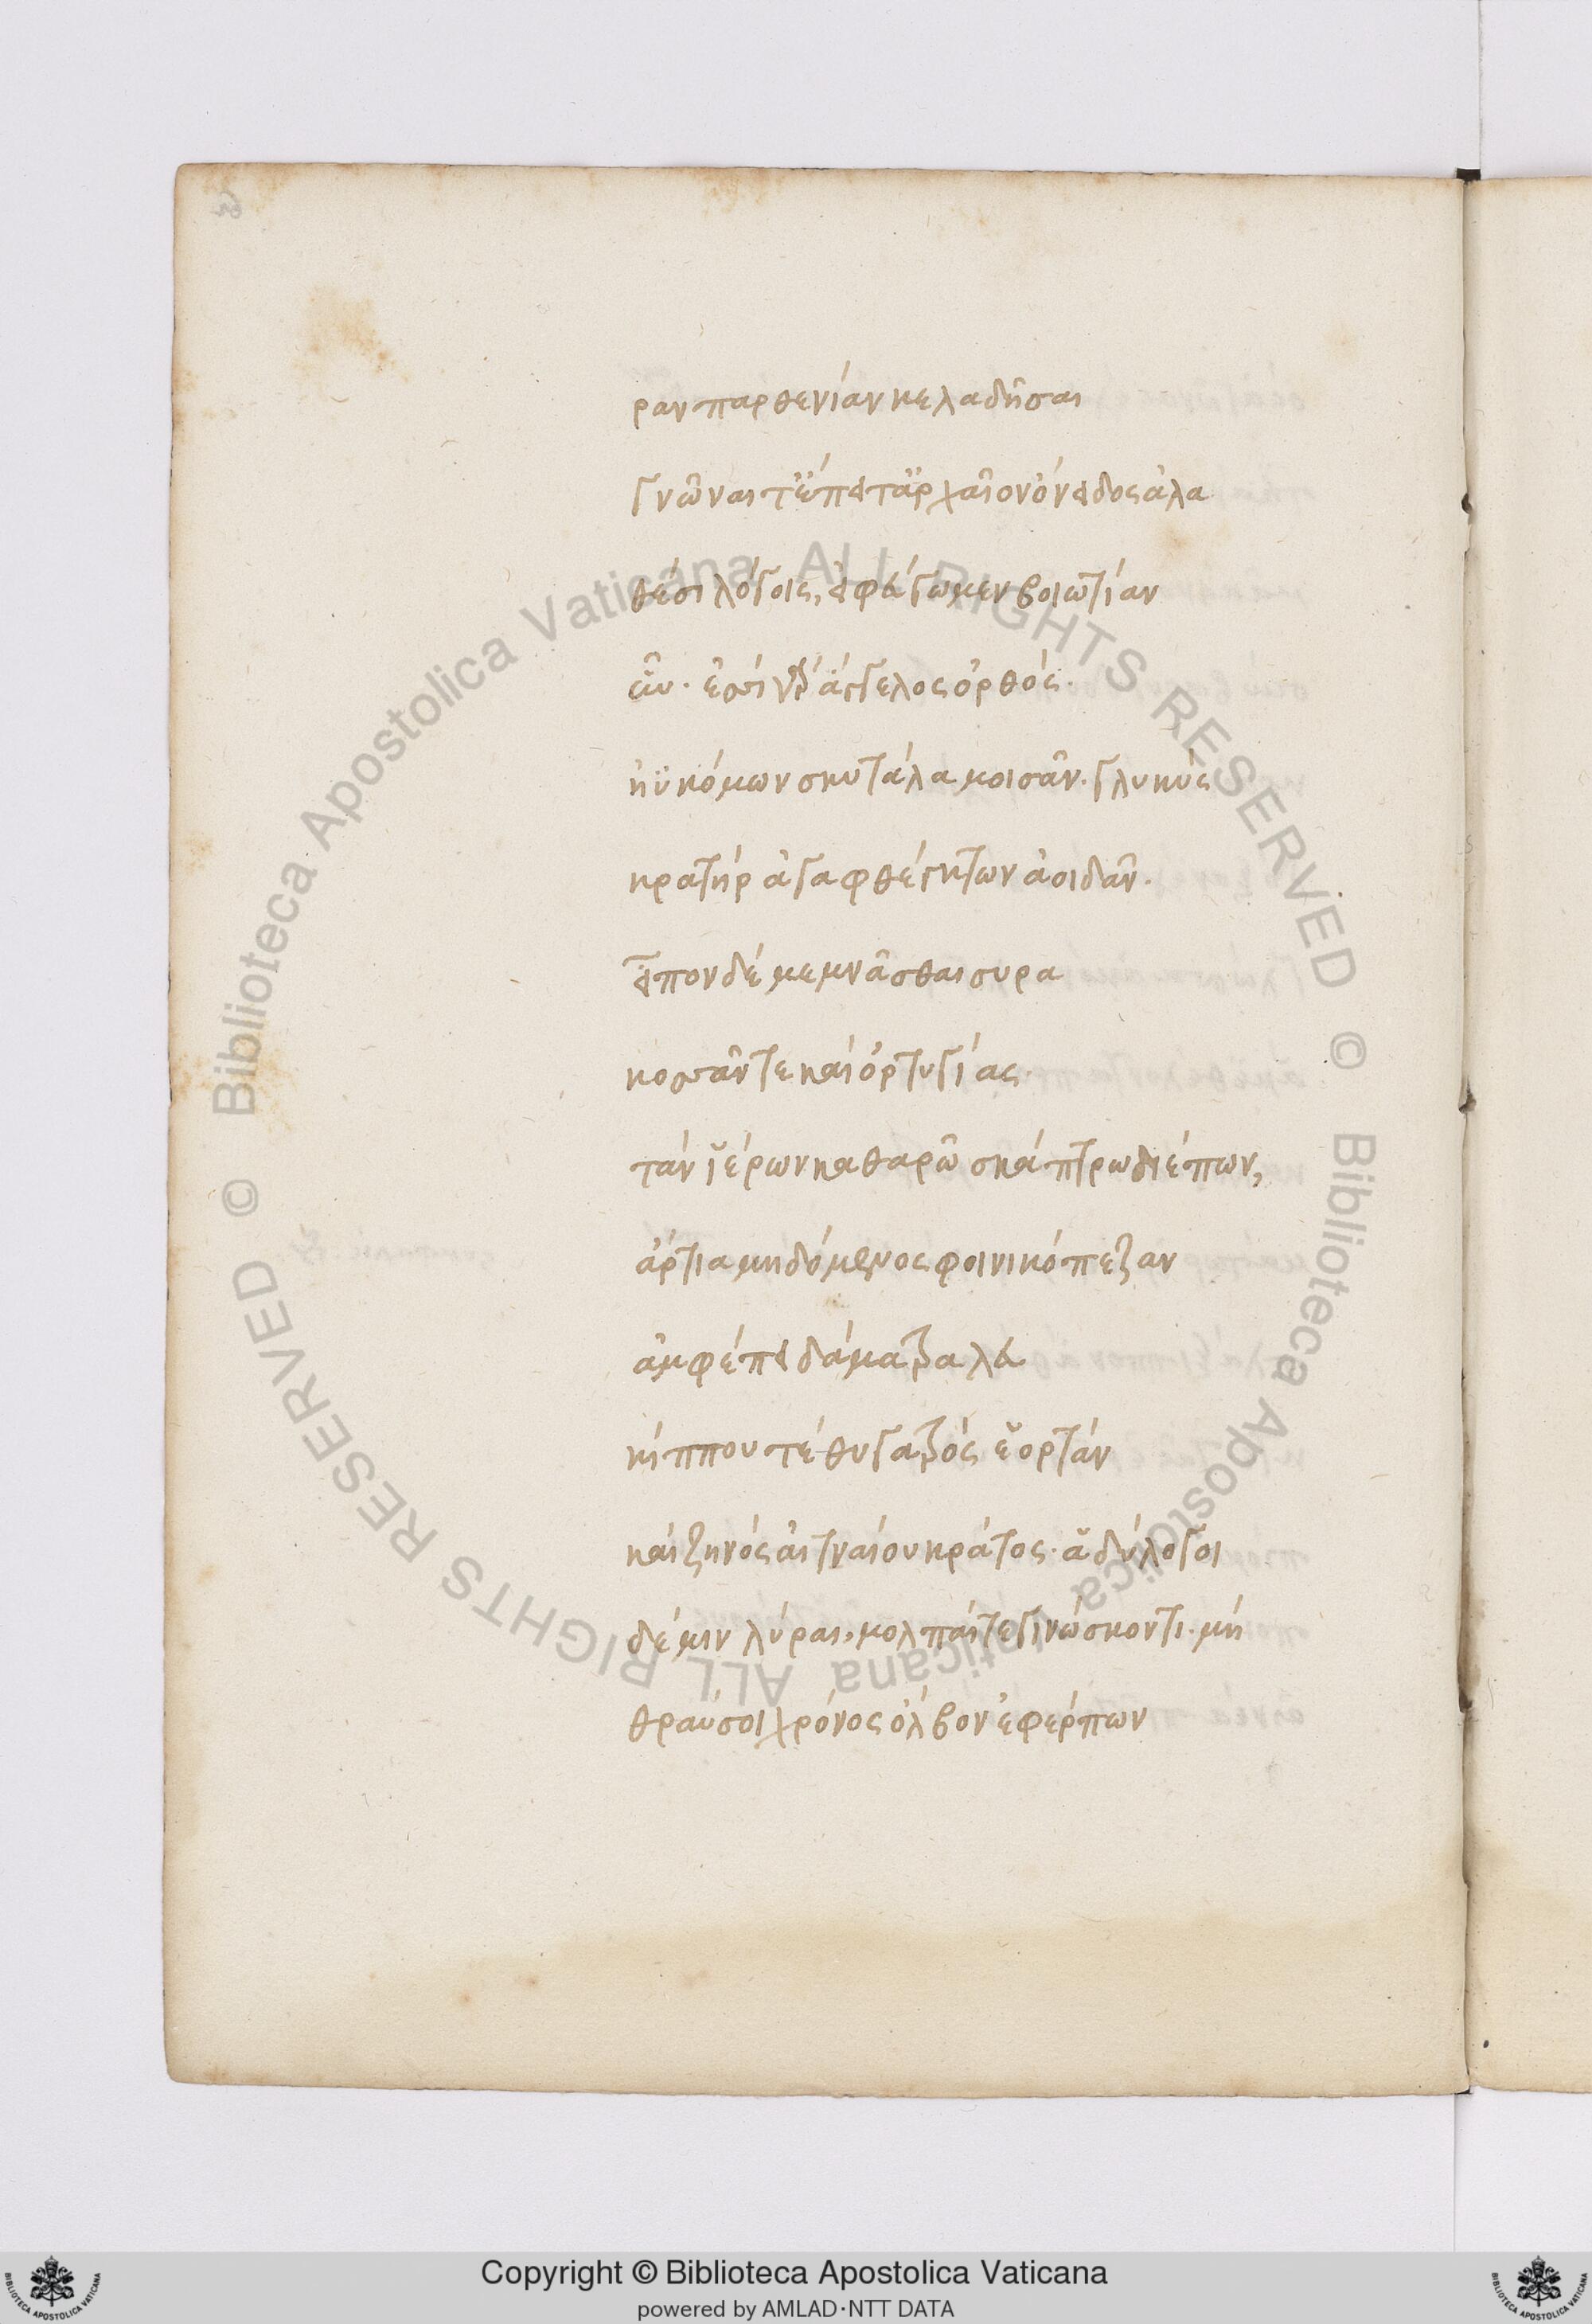 ραν παρθενίαν κελαδῆσαι
γνῶναι τ' ἔπειτ' ἀρχαῖον ὄνειδος ἀλα
θέσι λόγοις, εἰ φεύγωμεν βοιωτίαν
ὗν. ἐσσὶ γὰρ ἄγγελος ὀρθός.
ἠϋκόμων σκυτάλα μοισᾶν. γλυκὺς
κρατὴρ ἀγαφθέγκτων ἀοιδᾶν.
εἶπον δὲ μεμνᾶσθαι συρα
κοσσᾶν τε καὶ ὀρτυγίας.
τὰν ἱέρων καθαρῶ σκάπτρω διέπων,
ἄρτια μηδόμενος φοινικόπεζαν
ἀμφέπει δάματρα λευ
κίππου τὲ θυγατρὸς ἑορτὰν
καὶ ζηνὸς αἰτναίου κράτος. ἁδύλογοι
δέ μιν λύραι, μολπαί τε γινώσκοντι. μὴ
θραύσοι χρόνος ὄλβον ἐφέρπων
© Biblioteca Apostolica Vaticana ALL RIGHTS RESERVED
© Biblioteca Apostolica Vaticana ALL RIGHTS RESERVED
Copyright © Biblioteca Apostolica Vaticana
powered by AMLAD·NTT DATA